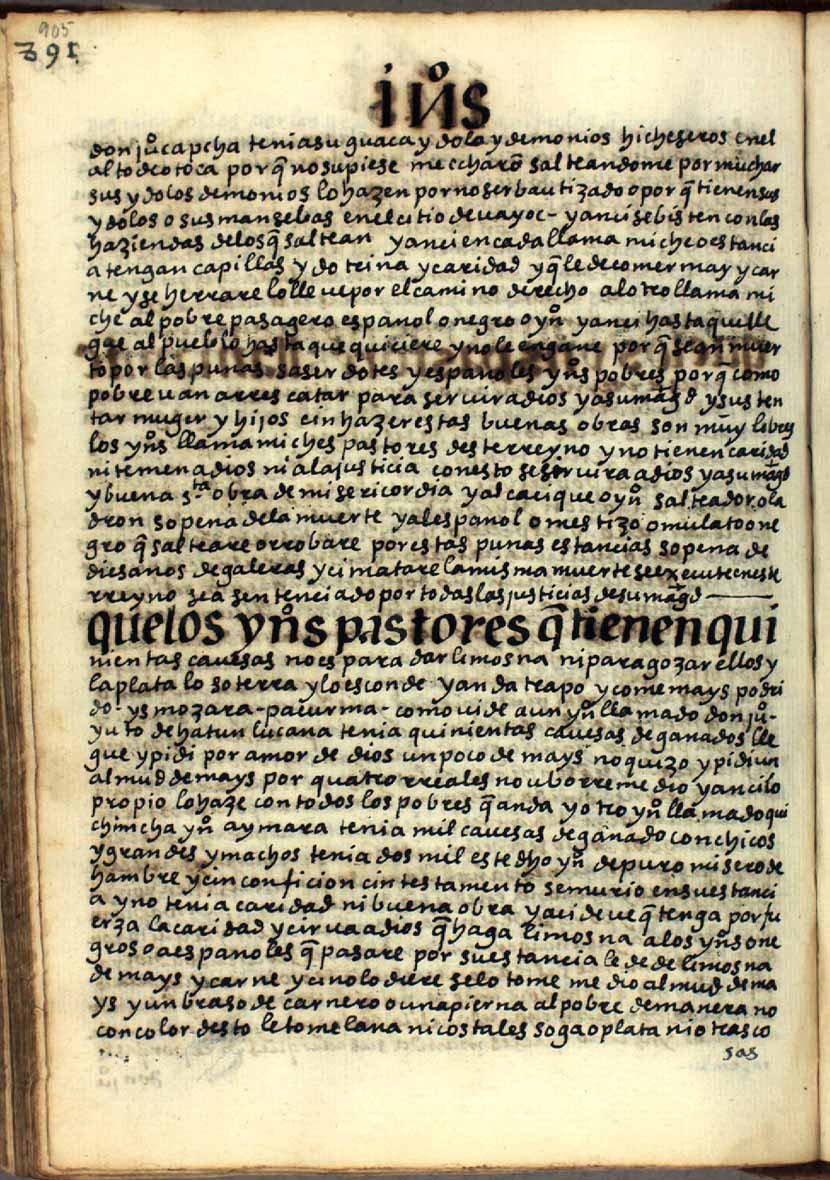 905
891
yn̊s
don jů capcha tenia su guaca y dolo y demonios hicheseros en el
alto de otoca por q̃ no supiese me echarõ salteandome por muchar
sus ydolos demonios lo hazen por no ser bautizado o por q̃ tienen sus
ydolos o sus mansebas en el citio de uayoc - y anci se bisten con las
haziendas de los q̃ saltean y anci en cada llama miche o estanci
a tengan capillas y dotrina y caridad y q̃ le de comer mays y car
ne y se herrare lo lleue por el camino derecho al otro llama mi
che al pobre pasagero español o negro o yn̊ y anci hasta que lle
gue al pueblo hasta que quiciere y no le engañe por q̃ se an muer
to por las punas saserdotes y españoles yn̊s pobres por q̃ como
pobre uan a rrescatar para seruir a dios y a su mag̃d y susten
tar muger y hijos cin hazer estas buenas obras son muy libres
los yn̊s llamamiches pastores deste rreyno y no tienen caridad
ni temen a dios ni a la justicia con esto se seruira a dios y a su mag̃d
y buena s.ta obra de misericordia y al cacique o yn̊ salteador o la
dron so pena de la muerte y al español o mestizo o mulato o ne
gro q̃ salteare o rrobare por estas punas estancias so pena de
dies años de galeras y ci matare la misma muerte se execute en este
rreyno sea sentenciado por todas las justicias de su mag̃d
que los yn̊s pastores q̃ tienen qui
nientas cauesas no es para dar limosna ni para gozar ellos y
la plata lo soterra y lo esconde y anda trapo y come mays podri
do - ysmo zara - pacurma - como uide a un yn̊ llamado don jů -
yuto de hatun lucana tenia quinientas cauesas de ganados lle
gue y pidi por amor de dios un poco de mays no quizo y pidi un
almud de mays por quatro rreales no ubo rremedio y anci lo
propio lo haze con todos los pobres q̃ anda y otro yn̊ llamado qui
chimcha yn̊ aymara tenia mil cauesas de ganado con chicos
y grandes y machos tenia dos mil este dho yn̊ de puro misero de
hambre y cin conficion cin testamento se murio en su estanci
a y no tenia caridad ni buena obra y aci deue q̃ tenga por fu
erza la caridad y cirua a dios q̃ haga limosna a los yn̊s o ne
gros o a españoles q̃ pasare por su estancia le de de limosna
de mays y carne y ci no lo diere se lo tome medio almud de ma
ys y un braso de carnero o una pierna al pobre de manera no
con color desto le tome lana ni costales soga o plata ni otras co
sas